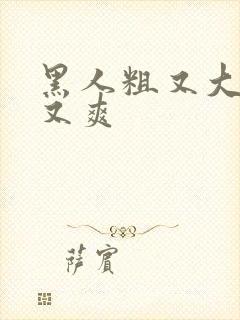 黑人粗又大
又爽
萨宾